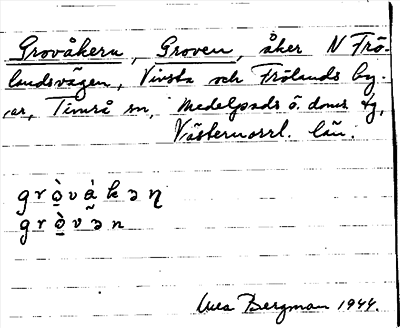 Grovåkern, Groven, åker N Frö-
landsvägen, Vivsta och Frölands by-
ar, Timrå sn, Medelpads ö. doms. tg,
Västernorrl. län.
grò̱vå̀kəɳ
grò̱vən
Bergman 1944.